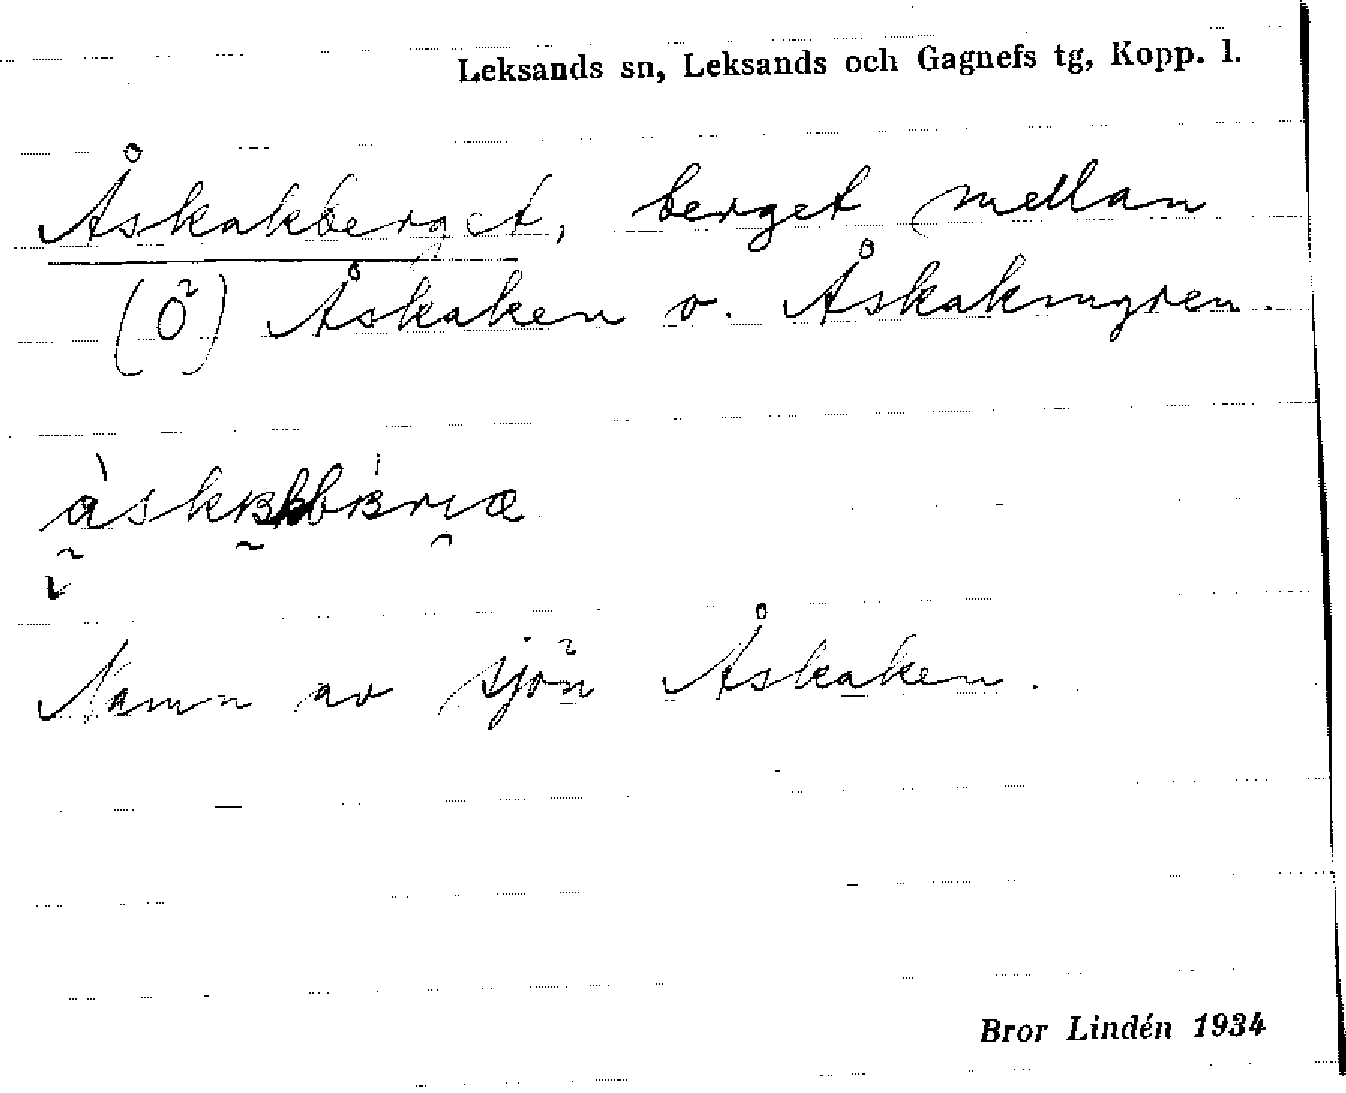 Leksands sn, Leksands och Gagnefs tg, Kopp. l.
Åskakberget, berget mellan
(Ö) Åskaken o. Åskakmyren.
Namn av sjön Åskaken.
Bror Lindén 1934